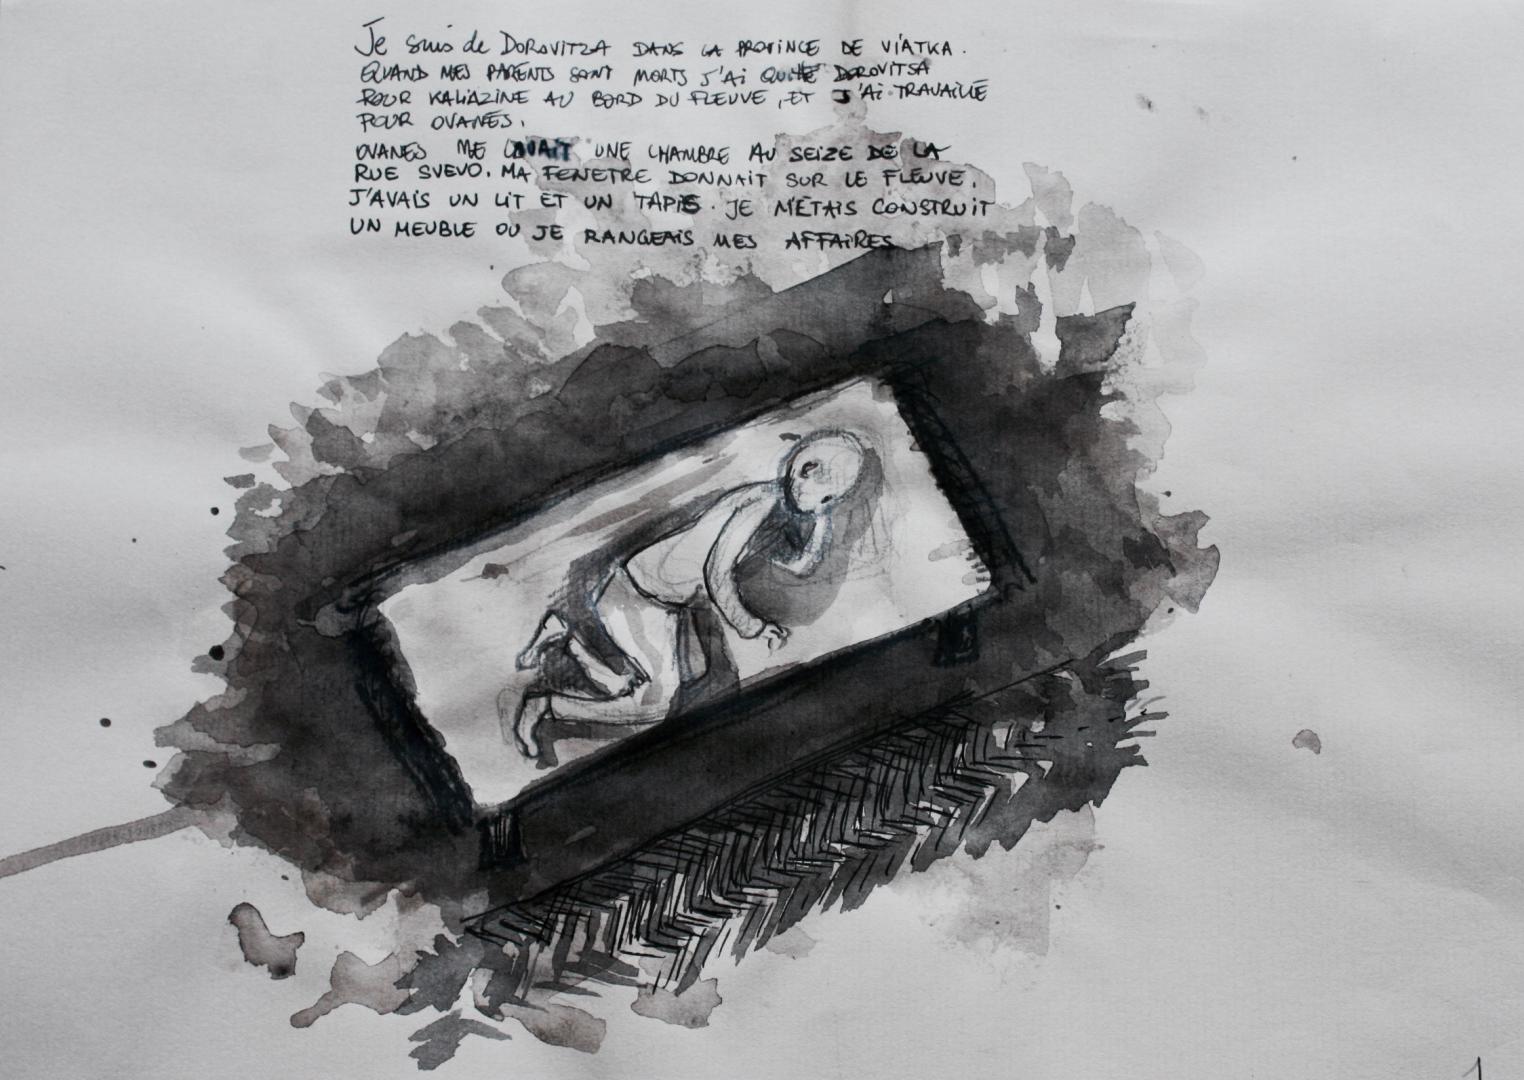 Je suis de DOROVITZA DANS LA PROVINCE DE VIATKA.
QUAND MES PARENTS SONT MORTS J'AI QUITTÉ DOROVITSA
POUR KALIAZINE AU BORD DU FLEUVE, ET J'AI TRAVAILLÉ
POUR OVANÈS.
OVANES ME LOUAIT UNE CHAMBRE AU SEIZE DE LA
RUE SVEVO. MA FENETRE DONNAIT SUR LE FLEUVE.
J'AVAIS UN LIT ET UN TAPIS. JE M'ÉTAIS CONSTRUIT
UN MEUBLE OU JE RANGEAIS MES AFFAIRES
1